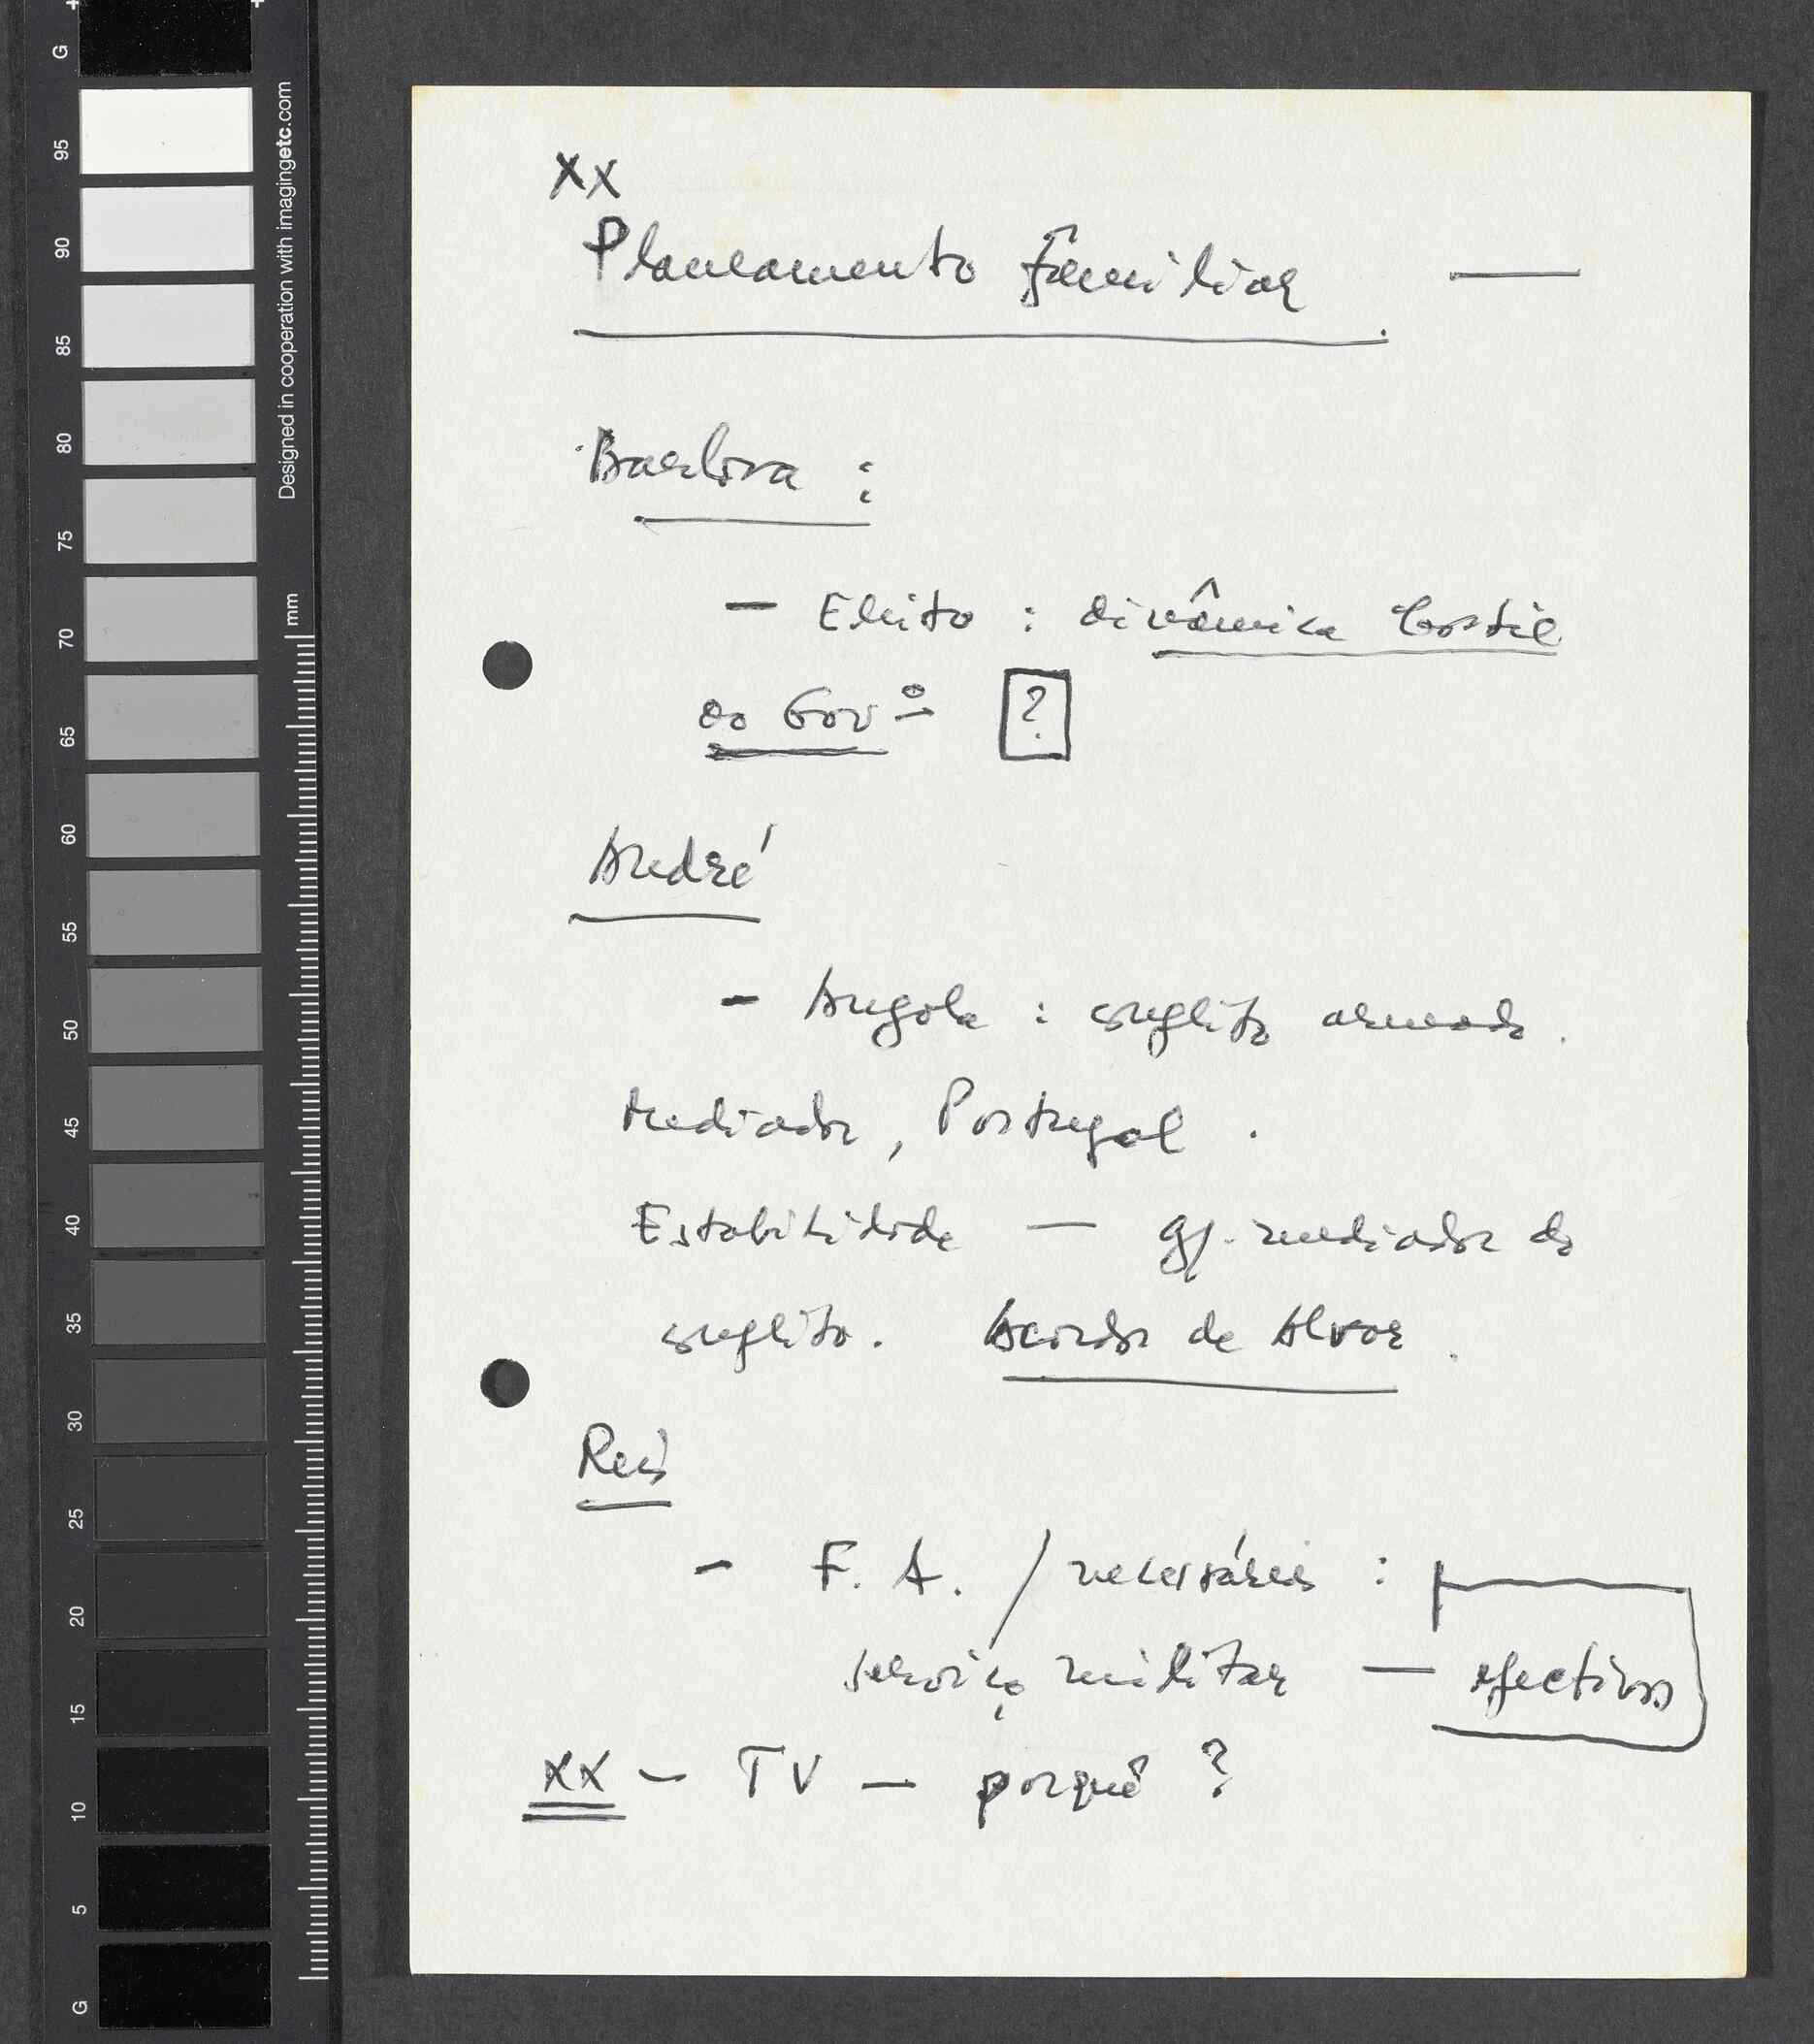 G
95
90
85
80
75
70
65
60
55
50
45
40
35
30
25
20
15
10
5
G
Designed in cooperation with imagingetc.com
mm
XX
Planeamento Familiar —
Barbosa :
– Eleito : dinâmica hostil
ao Govº ?
André
– Angola : conflito armado.
Mediador, Portugal.
Estabilidade — gp. mediador do
conflito. Acordo de Alvor.
Reis
– F. A. / necessárias :
serviço militar — efectivos
XX – TV — porquê ?